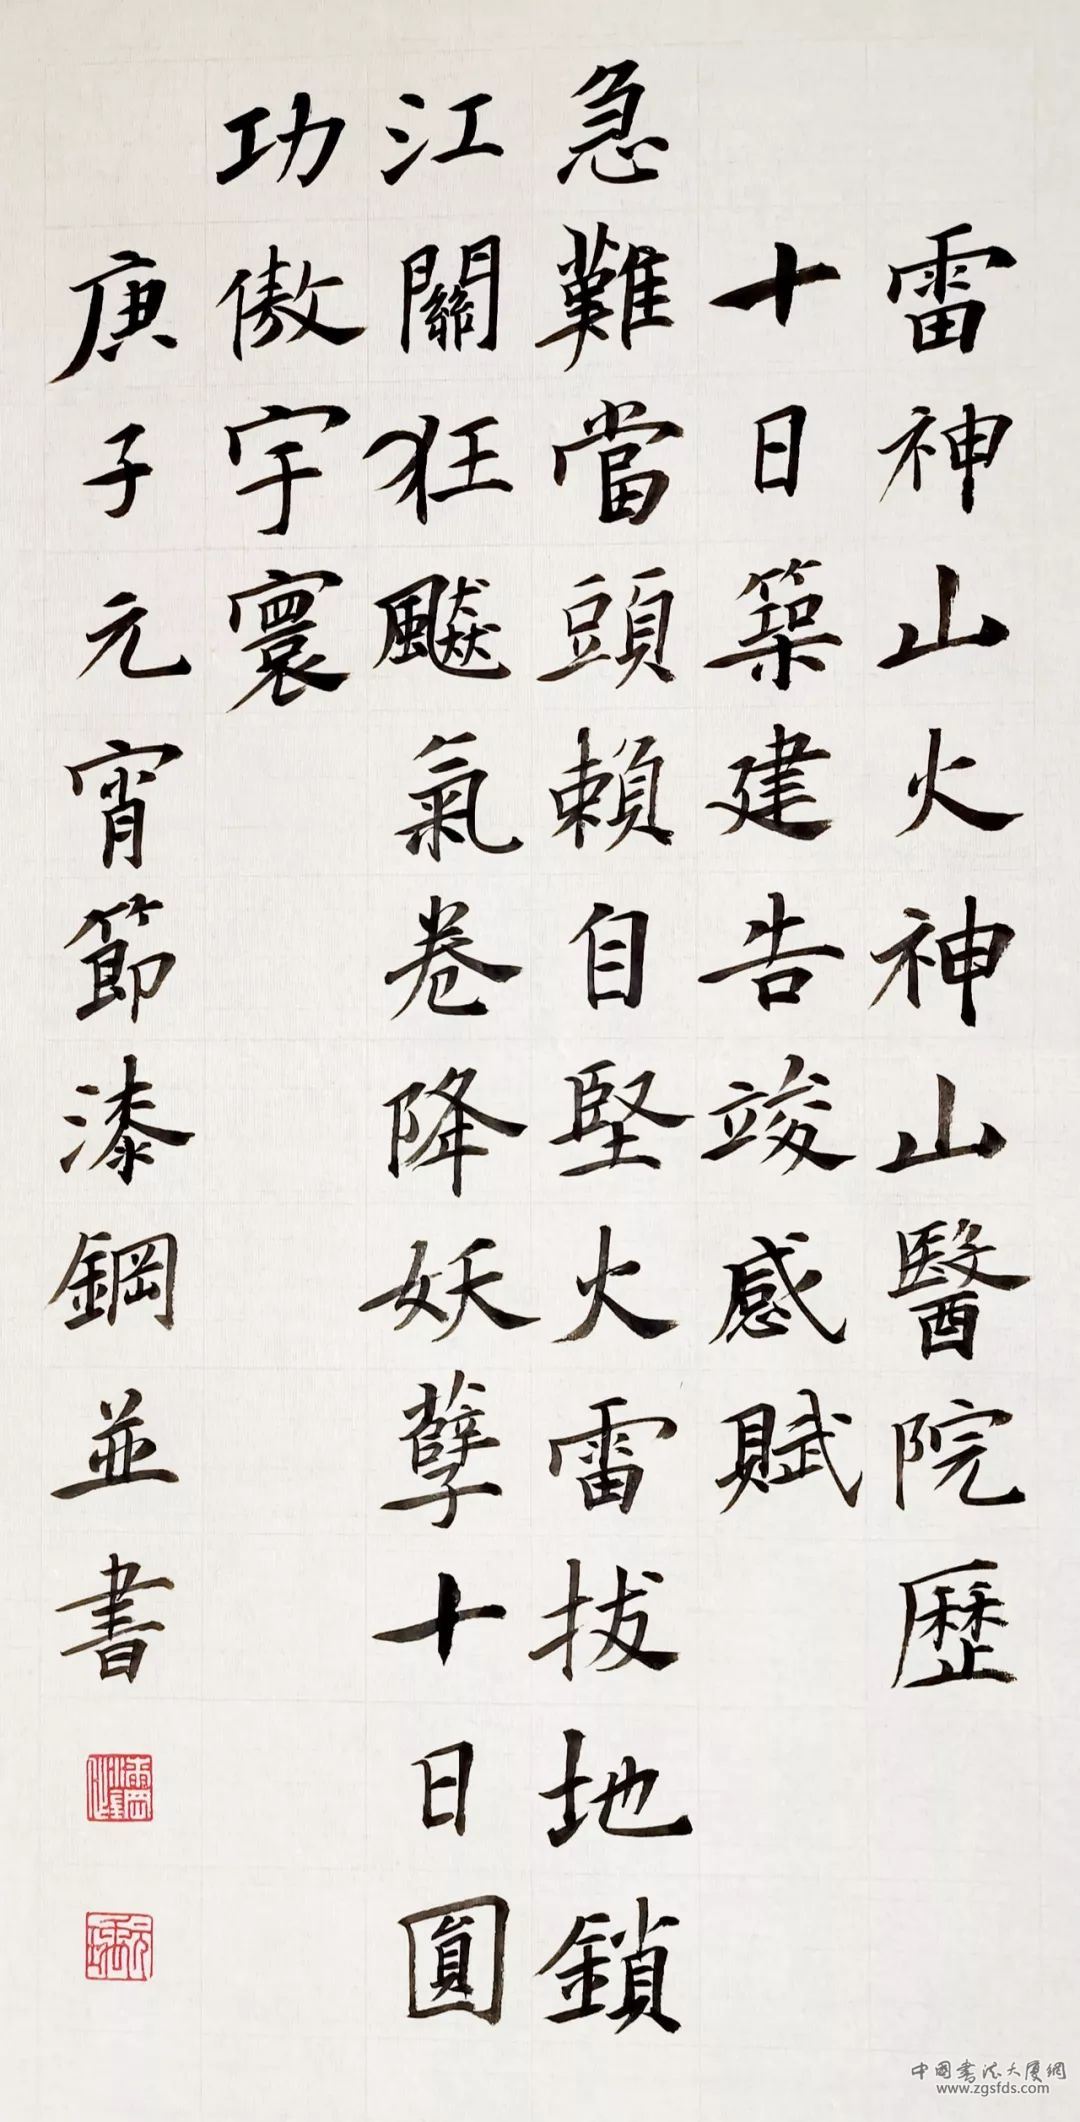 雷神山火神山醫院歷
十日築建告竣感賦
急難當頭賴自堅火雷拔地鎖
江關狂飈氣卷降妖孽十日圓
功傲宇寰
庚子元宵節漆鋼並書
中国书法大厦網
www.zgsfds.com